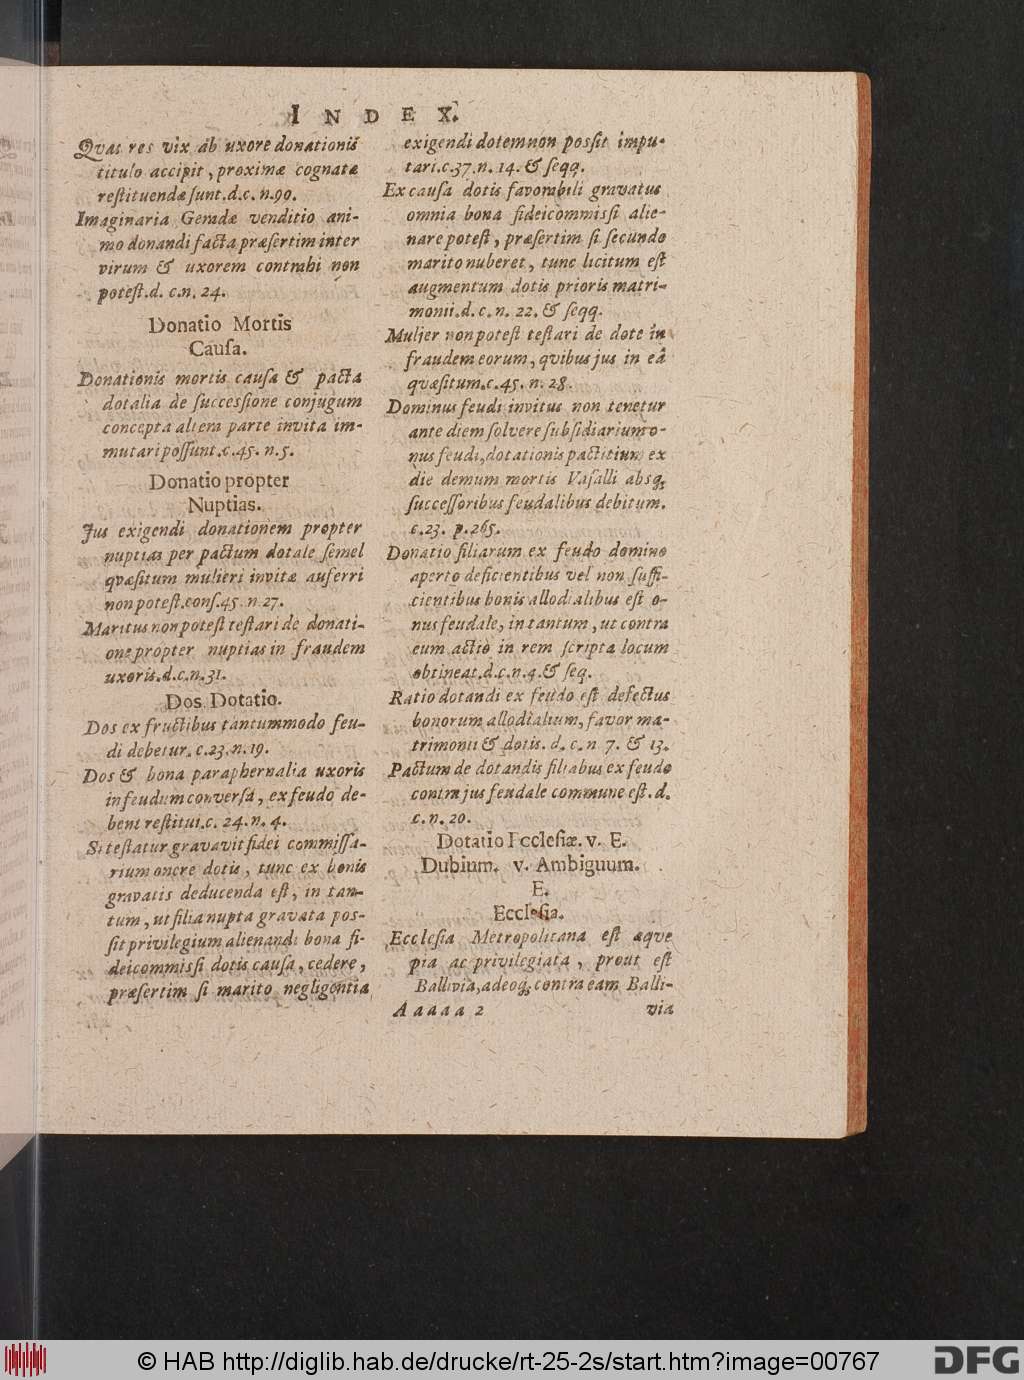 INDEX.
Qvas res vix ab uxore donationis
titulo accipit, proximæ cognatæ
reſtituendæ ſunt. d. c. n. 90.
Imaginaria Geradæ venditio ani-
mo donandi facta præſertim inter
virum & uxorem contrahi non
poteſt. d. c. n. 24.
Donatio Mortis
Cauſa.
Donationis mortis cauſa & pacta
dotalia de ſucceſſione conjugum
concepta altera parte invita im-
mutari poſſunt. c. 45. n. 5.
Donatio propter
Nuptias.
Jus exigendi donationem propter
nuptias per pactum dotale ſemel
qvæſitum mulieri invitæ auferri
non poteſt. conſ. 45. n. 27.
Maritus non poteſt teſtari de donati-
one propter nuptias in fraudem
uxoris. d. c. n. 31.
Dos, Dotatio.
Dos ex fructibus tantummodo feu-
di debetur. c. 23. n. 19.
Dos & bona paraphernalia uxoris
in feudum converſa, ex feudo de-
bent reſtitui. c. 24. n. 4.
Si teſtatur gravavit fidei commiſſa-
rium onere dotis, tunc ex bonis
gravatis deducenda eſt, in tan-
tum, ut filia nupta gravata poſ-
ſit privilegium alienandi bona fi-
deicommiſſi dotis cauſa, cedere,
præſertim ſi marito negligentia
exigendi dotem non poſſit impu-
tari. c. 37. n. 14. & ſeqq.
Ex cauſa dotis favorabili gravatus
omnia bona fideicommiſſi alie-
nare poteſt, præſertim ſi ſecundo
marito nuberet, tunc licitum eſt
augmentum dotis prioris matri-
monii. d. c. n. 22. & ſeqq.
Mulier non poteſt teſtari de dote in
fraudem eorum, qvibus jus in eâ
qvæſitum. c. 45. n. 28.
Dominus feudi invitus non tenetur
ante diem ſolvere ſubſidiarium o-
nus feudi, dotationis pactitium ex
die demum mortis Vaſalli absq;
ſucceſſoribus feudalibus debitum.
c. 23. p. 265.
Donatio filiarum ex feudo domino
aperto deficientibus vel non ſuffi-
cientibus bonis allodialibus eſt o-
nus feudale, in tantum, ut contra
eum actio in rem ſcripta locum
obtineat. d. c. n. 4. & ſeq.
Ratio dotandi ex feudo eſt defectus
bonorum allodialium, favor ma-
trimonii & dotis. d. c. n 7. & 13.
Pactum de dotandis filiabus ex feudo
contra jus feudale commune eſt. d.
c. n. 20.
Dotatio Eccleſiæ. v. E.
Dubium. v. Ambiguum.
E.
Eccleſia.
Eccleſia Metropolitana eſt æqve
pia ac privilegiata, prout eſt
Ballivia, adeoq; contra eam Balli-
Aaaaa 2 via
© HAB http://diglib.hab.de/drucke/rt-25-2s/start.htm?image=00767
DFG